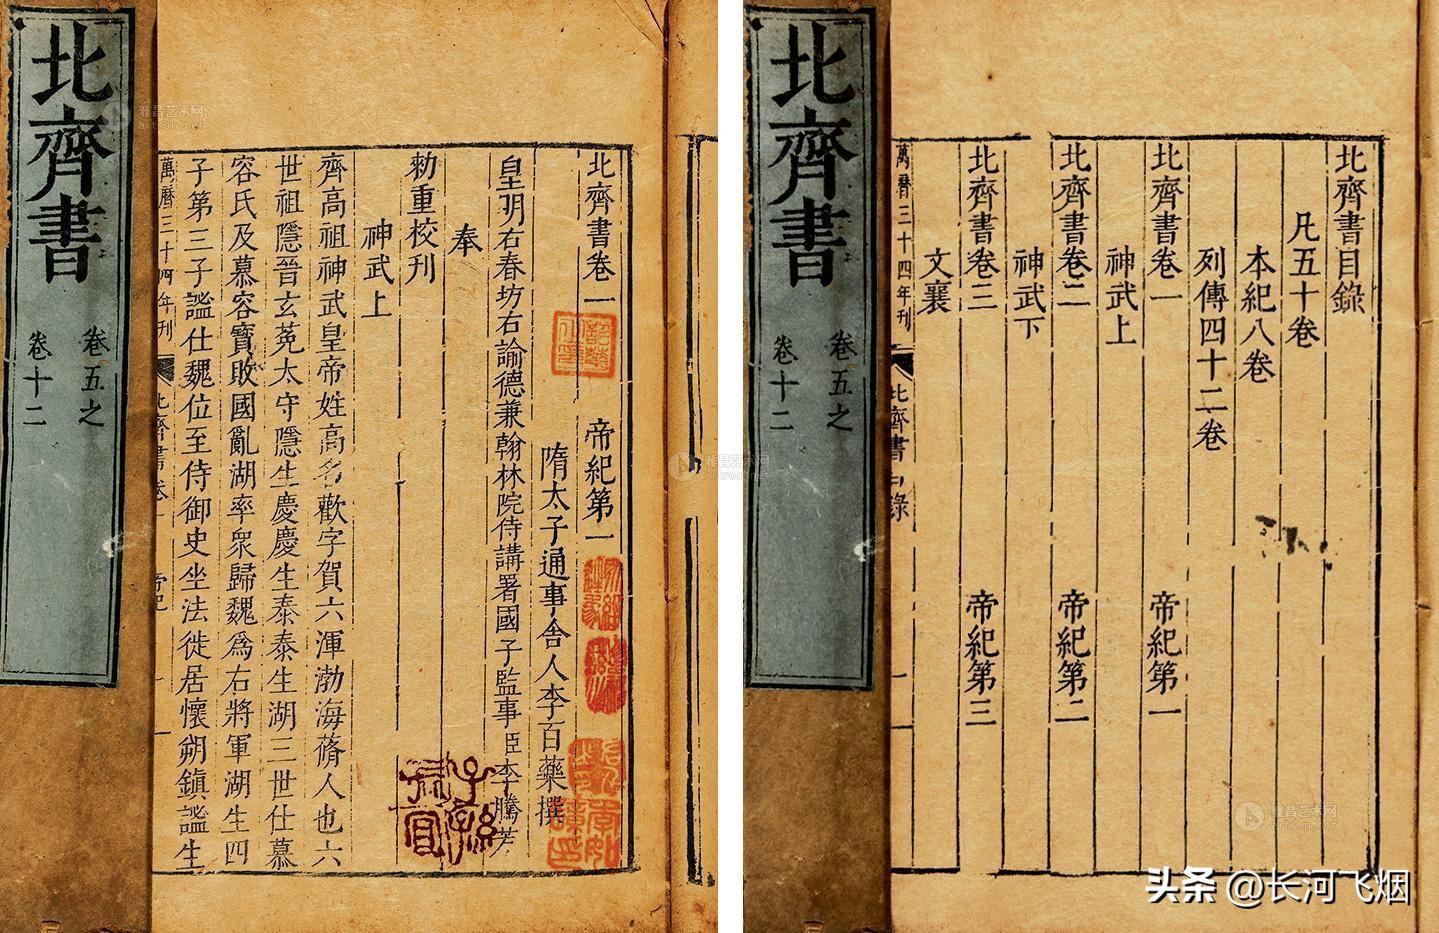 北齊書
卷五之
卷十二
北齊書卷一 帝紀第一
隋太子通事舍人李百藥撰
皇明右春坊右諭德兼翰林院侍講署國子監事臣李騰芳
奉
勑重校刊
神武上
齊高祖神武皇帝姓高名歡字賀六渾渤海蓨人也六
世祖隱晉玄菟太守隱生慶慶生泰泰生湖三世仕慕
容氏及慕容寶敗國亂湖率衆歸魏爲右將軍湖生四
子第三子謐仕魏位至侍御史坐法徙居懷朔鎮謐生
萬曆三十四年刊
北齊書卷一 帝紀 一
雅昌艺术网
artron.net
北齊書
卷五之
卷十二
北齊書目錄
凡五十卷
本紀八卷
列傳四十二卷
北齊書卷一 帝紀第一
神武上
北齊書卷二 帝紀第二
神武下
北齊書卷三 帝紀第三
文襄
萬曆三十四年刊
北齊書目錄 一
雅昌艺术网
artron.net
雅昌艺术网
artron.net
头条 @长河飞烟